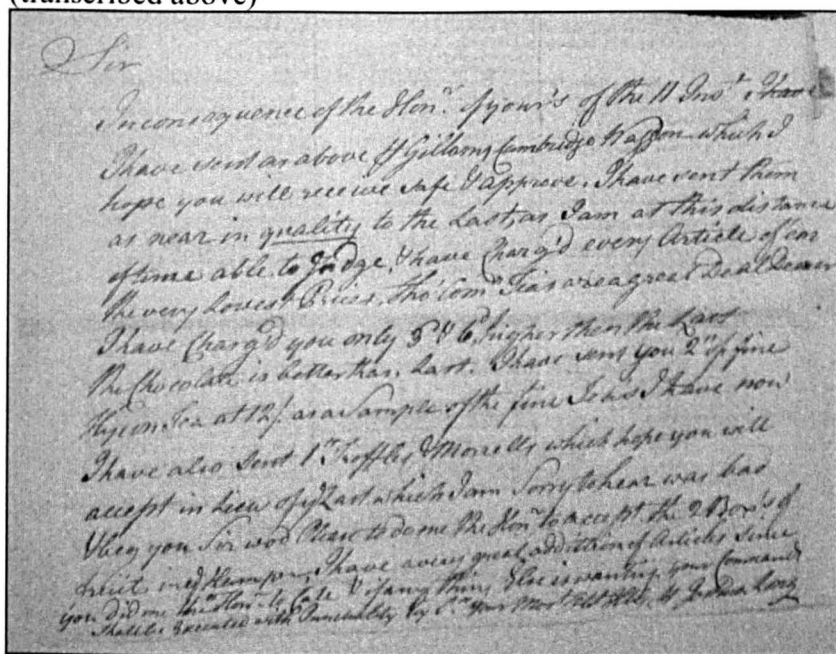 (transcribed above)
Sir
In consequence of the Hon.r of your's of the 11 Inst. I have
I have sent as above Gillams Cambridge Waggon which I
hope you will receive safe & approve. I have sent them
as near in quality to the Last, as I am at this distance
of time able to Judge, & have Charg'd every Article of
the very Lowest Prices. tho' Com.n Teas are a great Deal Dearer
I have Charg'd you only 5 & 6 higher then the Last
the Chocolate is better than Last. I have sent you 2 of fine
Hyson Tea at 12/. as a Sample of the fine Teas I have now
I have also sent 1 Troffles & Morells which hope you will
accept in Lieu of Last which I am Sorry to hear was bad
& beg you Sir wod Please to do me the Hon.r to accept the 2 Box's of
fruit in Hamper, I have a very great addittion of Articles since
you did me the Hon.r to & if any thing Else is wanting your Commands
Shall be Executed with Punctuality by Your Most